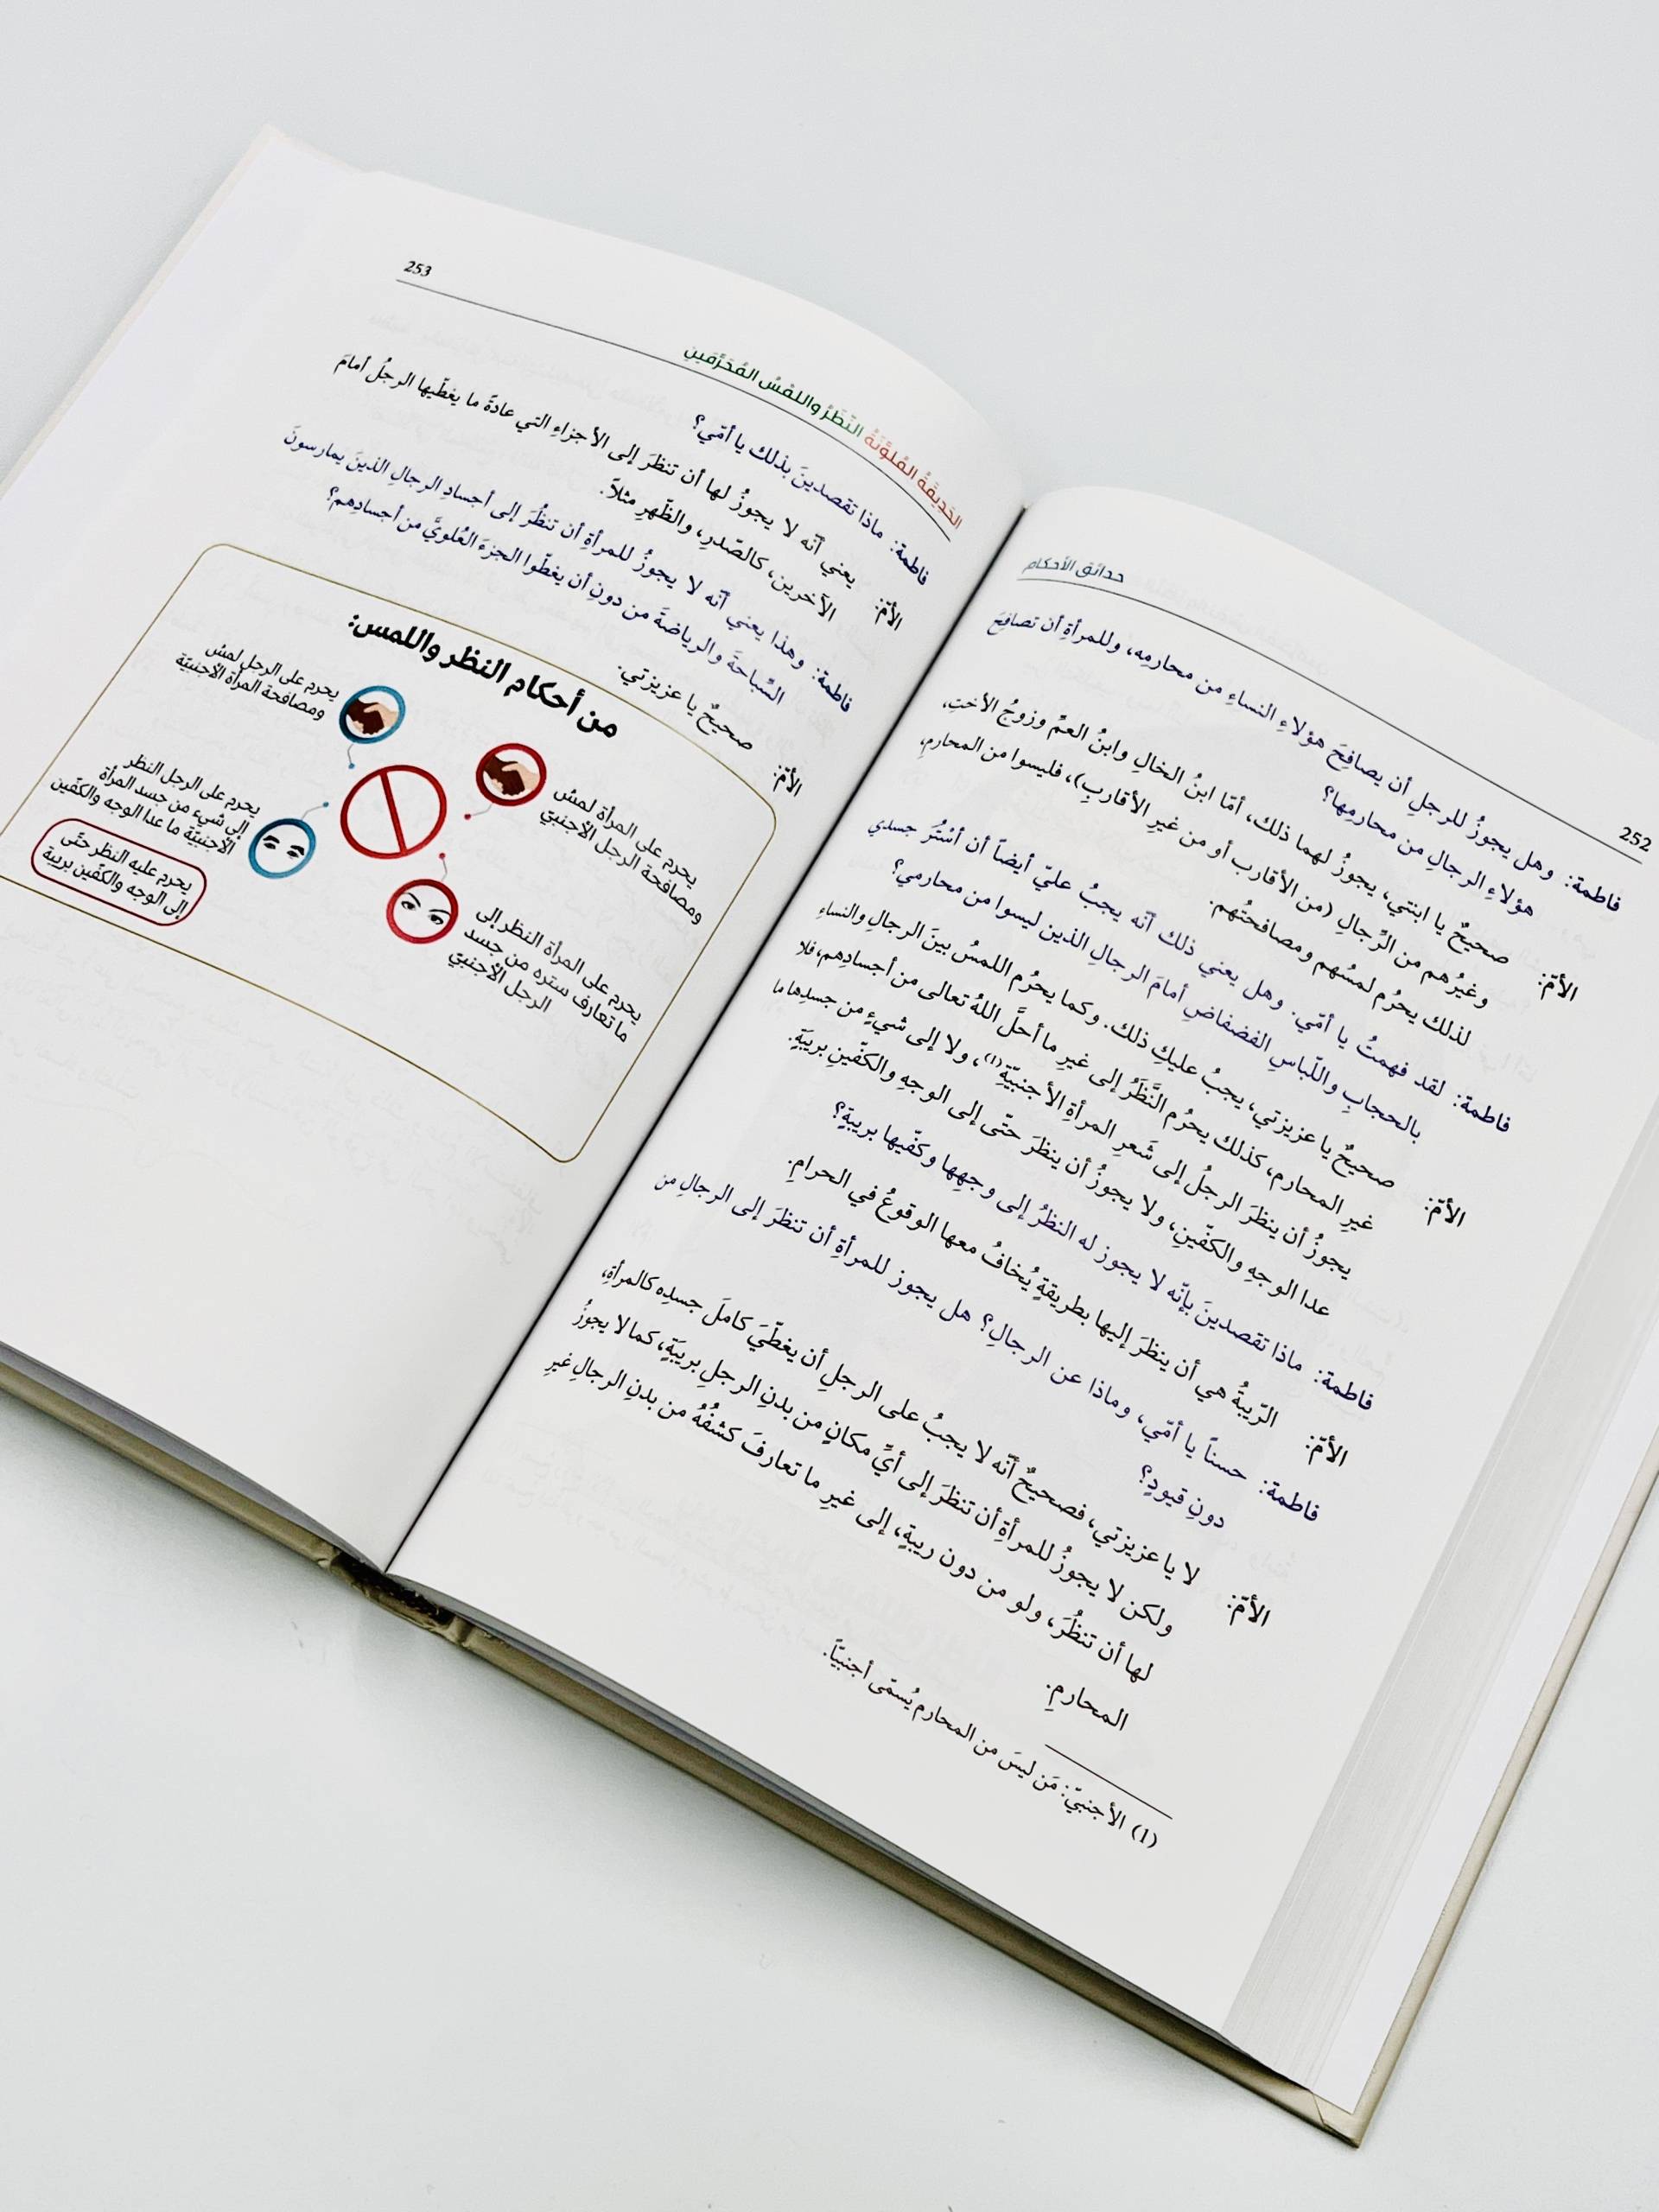 252
حدائق الأحكام
فاطمة: وهل يجوزُ للرجلِ أن يصافِحَ هؤلاءِ النساءِ من محارمِه، وللمرأةِ أن تصافِحَ
هؤلاءِ الرجالِ من محارمِها؟
الأمّ: صحيحٌ يا ابنتي، يجوزُ لهما ذلك، أمّا ابنُ الخالِ وابنُ العمِّ وزوجُ الأختِ،
وغيرُهم من الرِّجالِ (من الأقاربِ أو من غيرِ الأقاربِ)، فليسوا من المحارمِ،
لذلك يحرُم لمسُهم ومصافحتُهم.
فاطمة: لقد فهمتُ يا أمّي. وهل يعني ذلك أنّه يجبُ عليّ أيضاً أن أسْتُرَ جسدي
بالحجابِ واللّباسِ الفضفاضِ أمامَ الرجالِ الذين ليسوا من محارمي؟
الأمّ: صحيحٌ يا عزيزتي، يجبُ عليكِ ذلك. وكما يحرُم اللمسُ بينَ الرجالِ والنساءِ
غيرِ المحارم، كذلك يحرُم النَّظَرُ إلى غيرِ ما أحلَّ اللهُ تعالى من أجسادِهم، فلا
يجوزُ أن ينظرَ الرجلُ إلى شَعرِ المرأةِ الأجنبيّةِ(1)، ولا إلى شيءٍ من جسدِها ما
عدا الوجهِ والكفّينِ، ولا يجوزُ أن ينظرَ حتّى إلى الوجهِ والكفّينِ بريبةٍ.
فاطمة: ماذا تقصدينَ بإنّه لا يجوز له النظرُ إلى وجهِها وكفّيها بريبةٍ؟
الأمّ: الرّيبةُ هي أن ينظرَ إليها بطريقةٍ يُخافُ معها الوقوعُ في الحرامِ.
فاطمة: حسناً يا أمّي، وماذا عن الرجالِ؟ هل يجوز للمرأةِ أن تنظرَ إلى الرجالِ من
دونِ قيودٍ؟
الأمّ: لا يا عزيزتي، فصحيحٌ أنّه لا يجبُ على الرجلِ أن يغطّيَ كاملَ جسدِه كالمرأةِ،
ولكن لا يجوزُ للمرأةِ أن تنظرَ إلى أيِّ مكانٍ من بدنِ الرجلِ بريبَةٍ، كما لا يجوزُ
لها أن تنظُرَ، ولو من دون ريبةٍ، إلى غيرِ ما تعارفَ كشفُهُ من بدنِ الرجالِ غيرِ
المحارمِ.
(1) الأجنبيّ: مَن ليسَ من المحارمِ يُسمّى أجنبيّاً.
253
الحَديقَةُ المُلوَّنَةُ النَّظَرُ واللمْسُ المُحَرَّمَينِ
فاطمة: ماذا تقصدينَ بذلك يا أمّي؟
الأمّ: يعني أنّه لا يجوزُ لها أن تنظرَ إلى الأجزاءِ التي عادةً ما يغطّيها الرجلُ أمامَ
الآخرين، كالصّدرِ، والظّهرِ مثلاً.
فاطمة: وهذا يعني أنّه لا يجوزُ للمرأةِ أن تنظُرَ إلى أجسادِ الرجالِ الذينَ يمارسونَ
السِّباحةَ والرياضةَ من دونِ أن يغطّوا الجزءَ العُلويَّ من أجسادِهم؟
الأمّ: صحيحٌ يا عزيزتي.
من أحكام النظر واللمس:
يحرم على المرأة لمسُ
ومصافحة الرجل الأجنبيّ
يحرم على الرجل لمسُ
ومصافحة المرأة الأجنبيّة
يحرم على المرأة النظر إلى
ما تعارف ستره من جسد
الرجل الأجنبيّ
يحرم على الرجل النظر
إلى شيء من جسد المرأة
الأجنبيّة ما عدا الوجه والكفّين
يحرم عليه النظر حتّى
إلى الوجه والكفّين بريبة